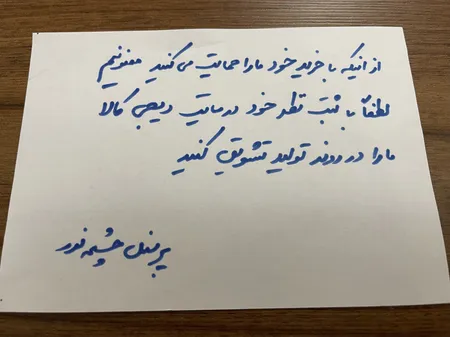 از اینکه با خرید خود ما را حمایت می کنید ممنونیم
لطفاً با ثبت نظر خود در سایت دیجی کالا
ما را در روند تولید تشویق کنید
پرسنل چشمه نور